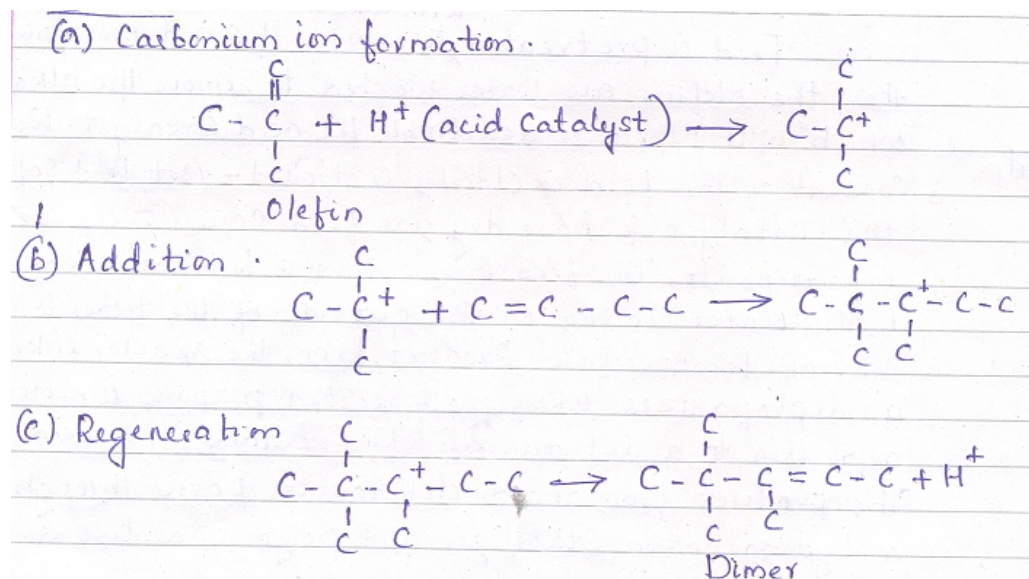 (a) Carbonium ion formation.
C
||
C - C + H+ (acid catalyst) → C - C+
|
C
Olefin
C
|
|
C
1
(b) Addition .
C
|
C - C+ + C = C - C - C → C - C - C+ - C - C
|
C
C
|
| |
C C
(c) Regeneration
C
|
C - C - C+ - C - C → C - C - C = C - C + H+
| |
C C
C
|
| |
C C
Dimer